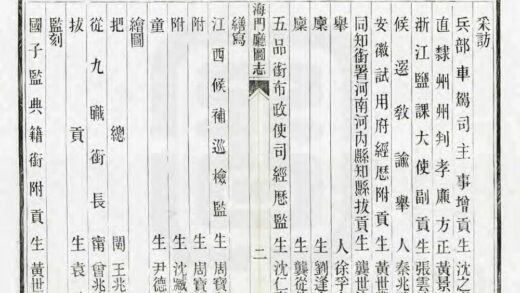 采訪
兵部車駕司主事增貢生沈之
直隸州州判孝廉方正黃景
浙江鹽課大使副貢生張雲
候選教諭舉人秦兆
安徽試用府經歷附貢生黃世
同知銜署河南河內縣知縣拔貢生龔世
舉人徐孚
廩生劉逢
廩生龔從
五品銜布政使司經歷監生沈仁
海門廳圖志
二
繕寫
江西候補巡檢監生周寶
附生周寶
附生沈臧
童生尹德
繪圖
把總閔王兆
從九職銜長甯曾兆
拔貢生袁
監刻
國子監典籍銜附貢生黃世